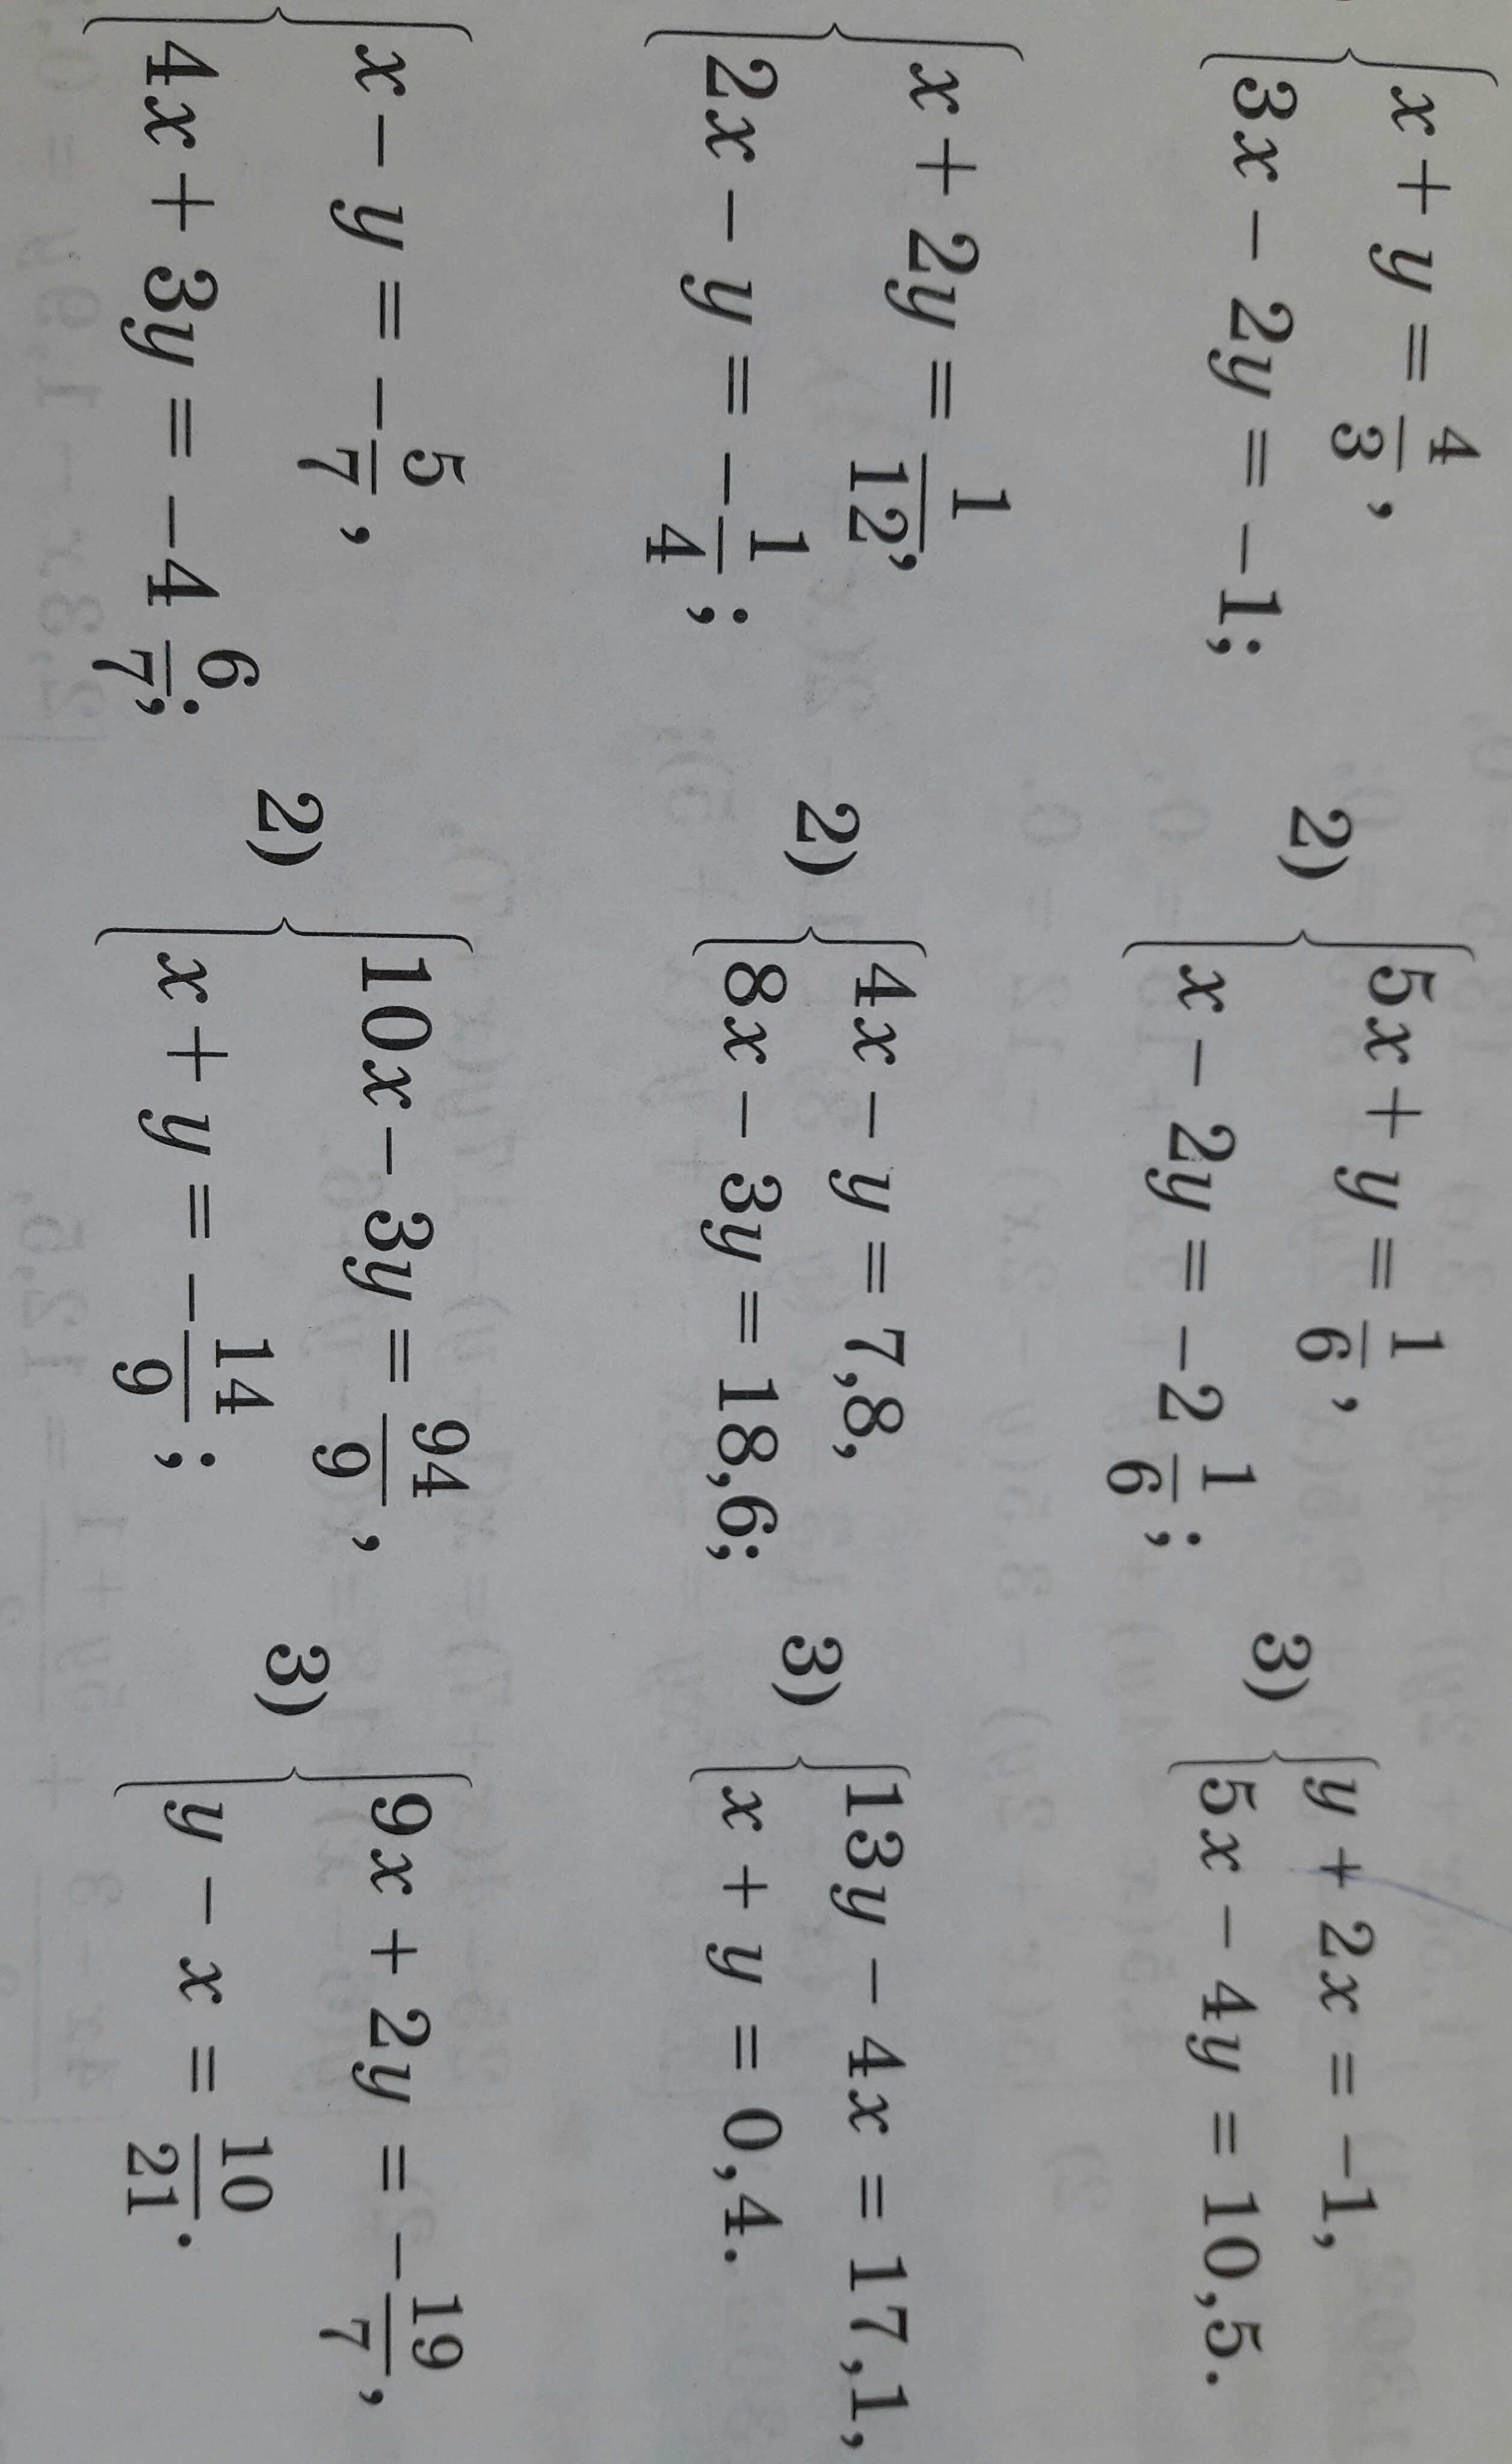 x + y = 4/3,
3x − 2y = −1;
2) 5x + y = 1/6,
x − 2y = −2 1/6;
3) y + 2x = −1,
5x − 4y = 10,5.
x + 2y = 1/12,
2x − y = −1/4;
2) 4x − y = 7,8,
8x − 3y = 18,6;
3) 13y − 4x = 17,1,
x + y = 0,4.
x − y = −5/7,
4x + 3y = −4 6/7;
2) 10x − 3y = 94/9,
x + y = −14/9;
3) 9x + 2y = −19/7,
y − x = 10/21.